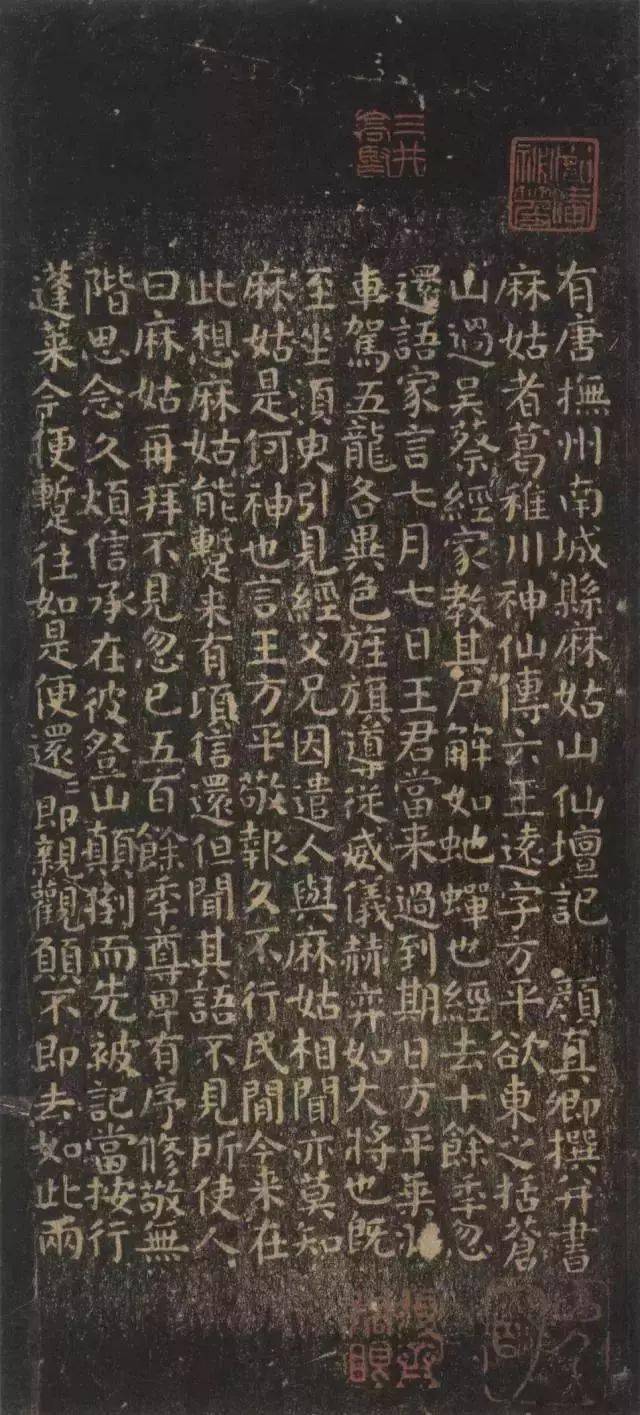 三井
高堅
有唐撫州南城縣麻姑山仙壇記 顏真卿撰并書
麻姑者葛稚川神仙傳云王遠字方平欲東之括蒼
山過吳蔡經家教其尸解如虵蟬也經去十餘年忽
還語家言七月七日王君當来過到期日方平乗
車駕五龍各異色旌旗導從威儀赫弈如大將也旣
至坐須臾引見經父兄因遣人與麻姑相聞亦莫知
麻姑是何神也言王方平敬報久不行民間今来在
此想麻姑能蹔来有頃信還但聞其語不見所使人
曰麻姑再拜不見忽已五百餘年尊卑有序修敬無
階思念久煩信承在彼登山顛倒而先被記當按行
蓬萊今便蹔往如是便還還即親觀願不即去如此兩